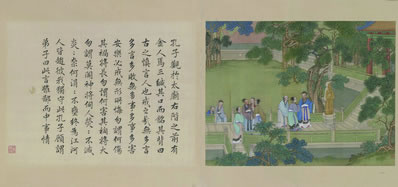 孔子觀於太廟右階之前有
金人焉三緘其口而銘其背曰
古之慎言人也戒之哉無多言
多言多敗無多事多事多害
安樂必戒無行所悔勿謂何傷
其禍將長勿謂何害其禍將大
勿謂莫聞神將伺人熒〻不滅
炎〻柰何涓〻不壅終為江河
人皆趨彼我獨守此孔子顧謂
弟子曰此言雖鄙而中事情